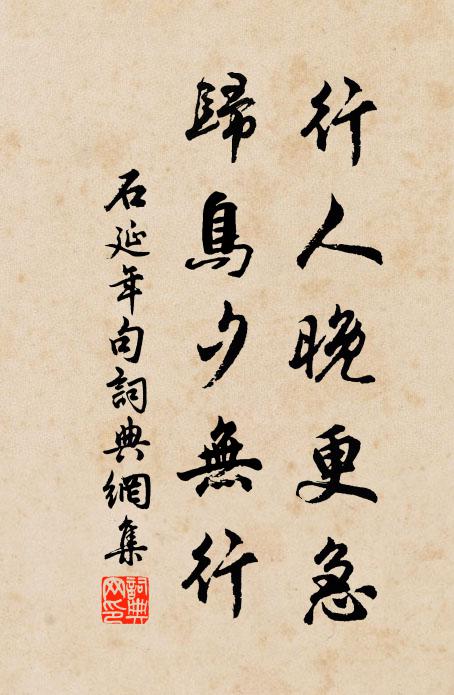 行人晚更急
歸鳥夕無行
石延年句詞典網集
詞典网印